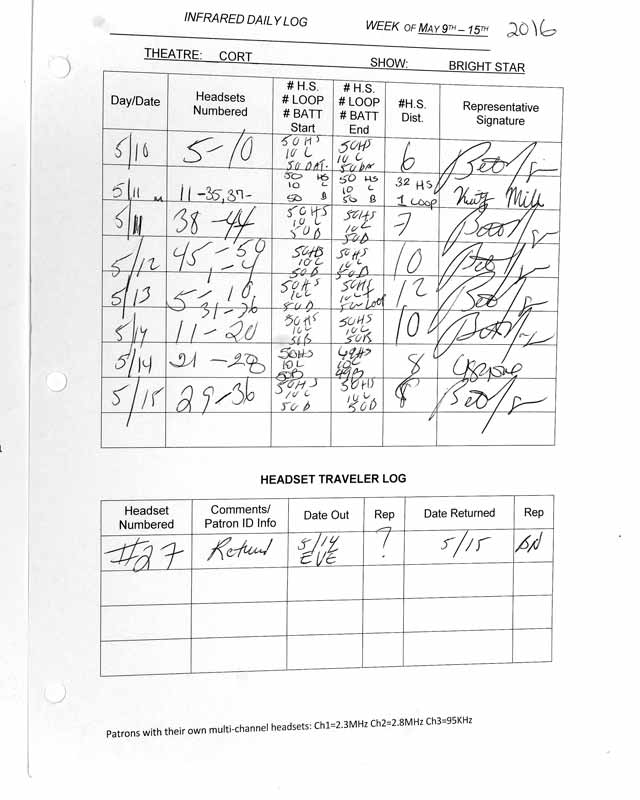 INFRARED DAILY LOG WEEK OF MAY 9TH – 15TH 2016
THEATRE: CORT SHOW: BRIGHT STAR
Day/Date Headsets Numbered # H.S. # LOOP # BATT Start # H.S. # LOOP # BATT End #H.S. Dist. Representative Signature
5/10 5-10 50HS 10L 50BAT. 50HS 10L 50BAT 6
5/11 M 11-35,37- 50 HS 10 L 50 B 50 HS 10 L 50 B 32 HS 1 LOOP
5/11 38-44 50HS 10L 50B 50HS 10L 50B 7
5/12 45-50 1-4 50HB 10L 50B 50HS 10L 50B 10
5/13 5-10 31-36 50HS 10L 50B 50HS 10L 12
5/14 11-20 50HS 10L 50B 50HS 10L 50B 10
5/14 21-28 50HS 10L 50B 49HS 10L 49B 8
5/15 29-36 50HS 10L 50B 50HS 10L 50B 8
HEADSET TRAVELER LOG
Headset Numbered Comments/ Patron ID Info Date Out Rep Date Returned Rep
#27 Return 5/14 EVE ? 5/15 BN
Patrons with their own multi-channel headsets: Ch1=2.3MHz Ch2=2.8MHz Ch3=95KHz